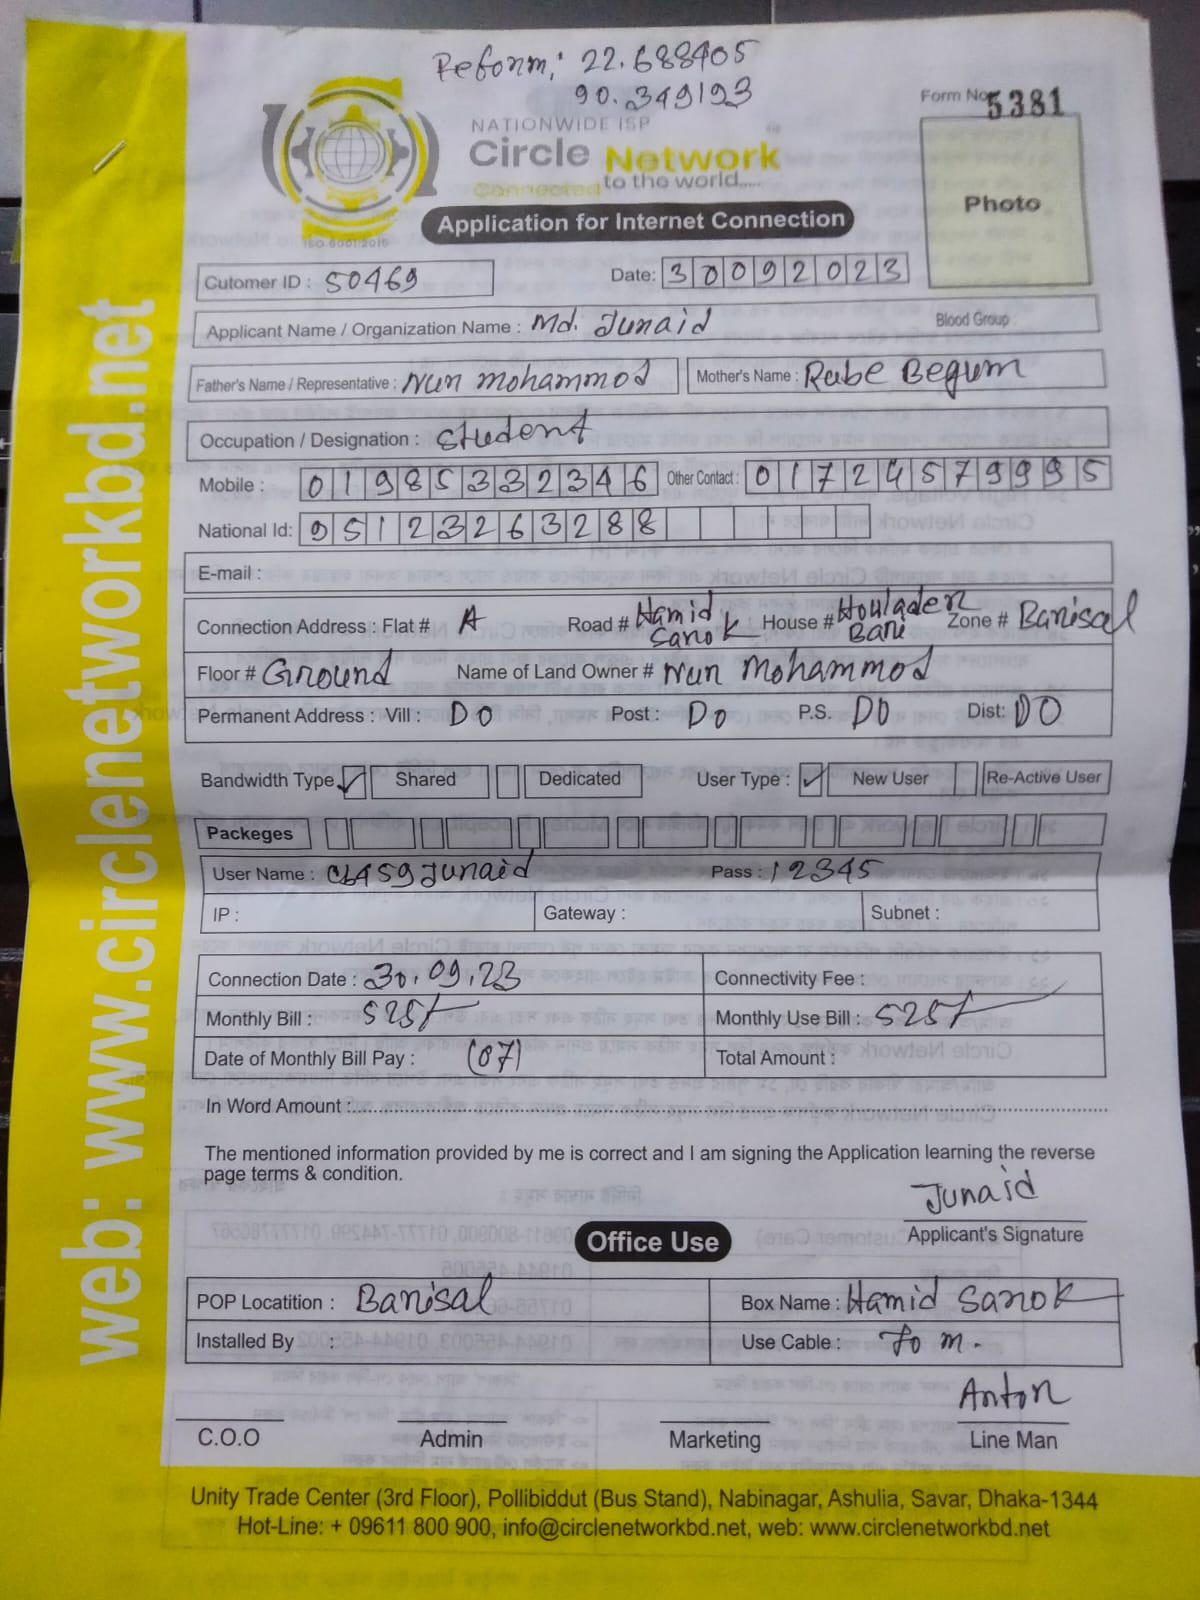 Reform: 22.688405
90.349193
Form No. 5381
NATIONWIDE ISP
Circle Network
Connected to the world.....
ISO 9001:2015
Photo
Application for Internet Connection
Cutomer ID : 50469 Date: 30092023
Applicant Name / Organization Name : Md. Junaid Blood Group :
Father's Name / Representative : Nur mohammod Mother's Name : Rabe Begum
Occupation / Designation : Student
Mobile : 01985332346 Other Contact : 01724579995
National Id: 95123263288
E-mail :
Connection Address : Flat # A Road # Hamid Sarok House # Howlader Bari Zone # Barisal
Floor # Ground Name of Land Owner # Nur Mohammod
Permanent Address : Vill : DO Post : Do P.S. DO Dist: DO
Bandwidth Type ✓ Shared Dedicated User Type : ✓ New User Re-Active User
Packeges
User Name : CL459Junaid Pass : 12345
IP : Gateway : Subnet :
Connection Date : 30.09.23 Connectivity Fee :
Monthly Bill : 525/- Monthly Use Bill : 525/-
Date of Monthly Bill Pay : (07) Total Amount :
In Word Amount :
The mentioned information provided by me is correct and I am signing the Application learning the reverse
page terms & condition.
Junaid
Applicant's Signature
Office Use
POP Locatition : Barisal Box Name : Hamid Sarok
Installed By : Use Cable : 70 m.
Anton
C.O.O Admin Marketing Line Man
Unity Trade Center (3rd Floor), Pollibiddut (Bus Stand), Nabinagar, Ashulia, Savar, Dhaka-1344
Hot-Line: + 09611 800 900, info@circlenetworkbd.net, web: www.circlenetworkbd.net
web: www.circlenetworkbd.net